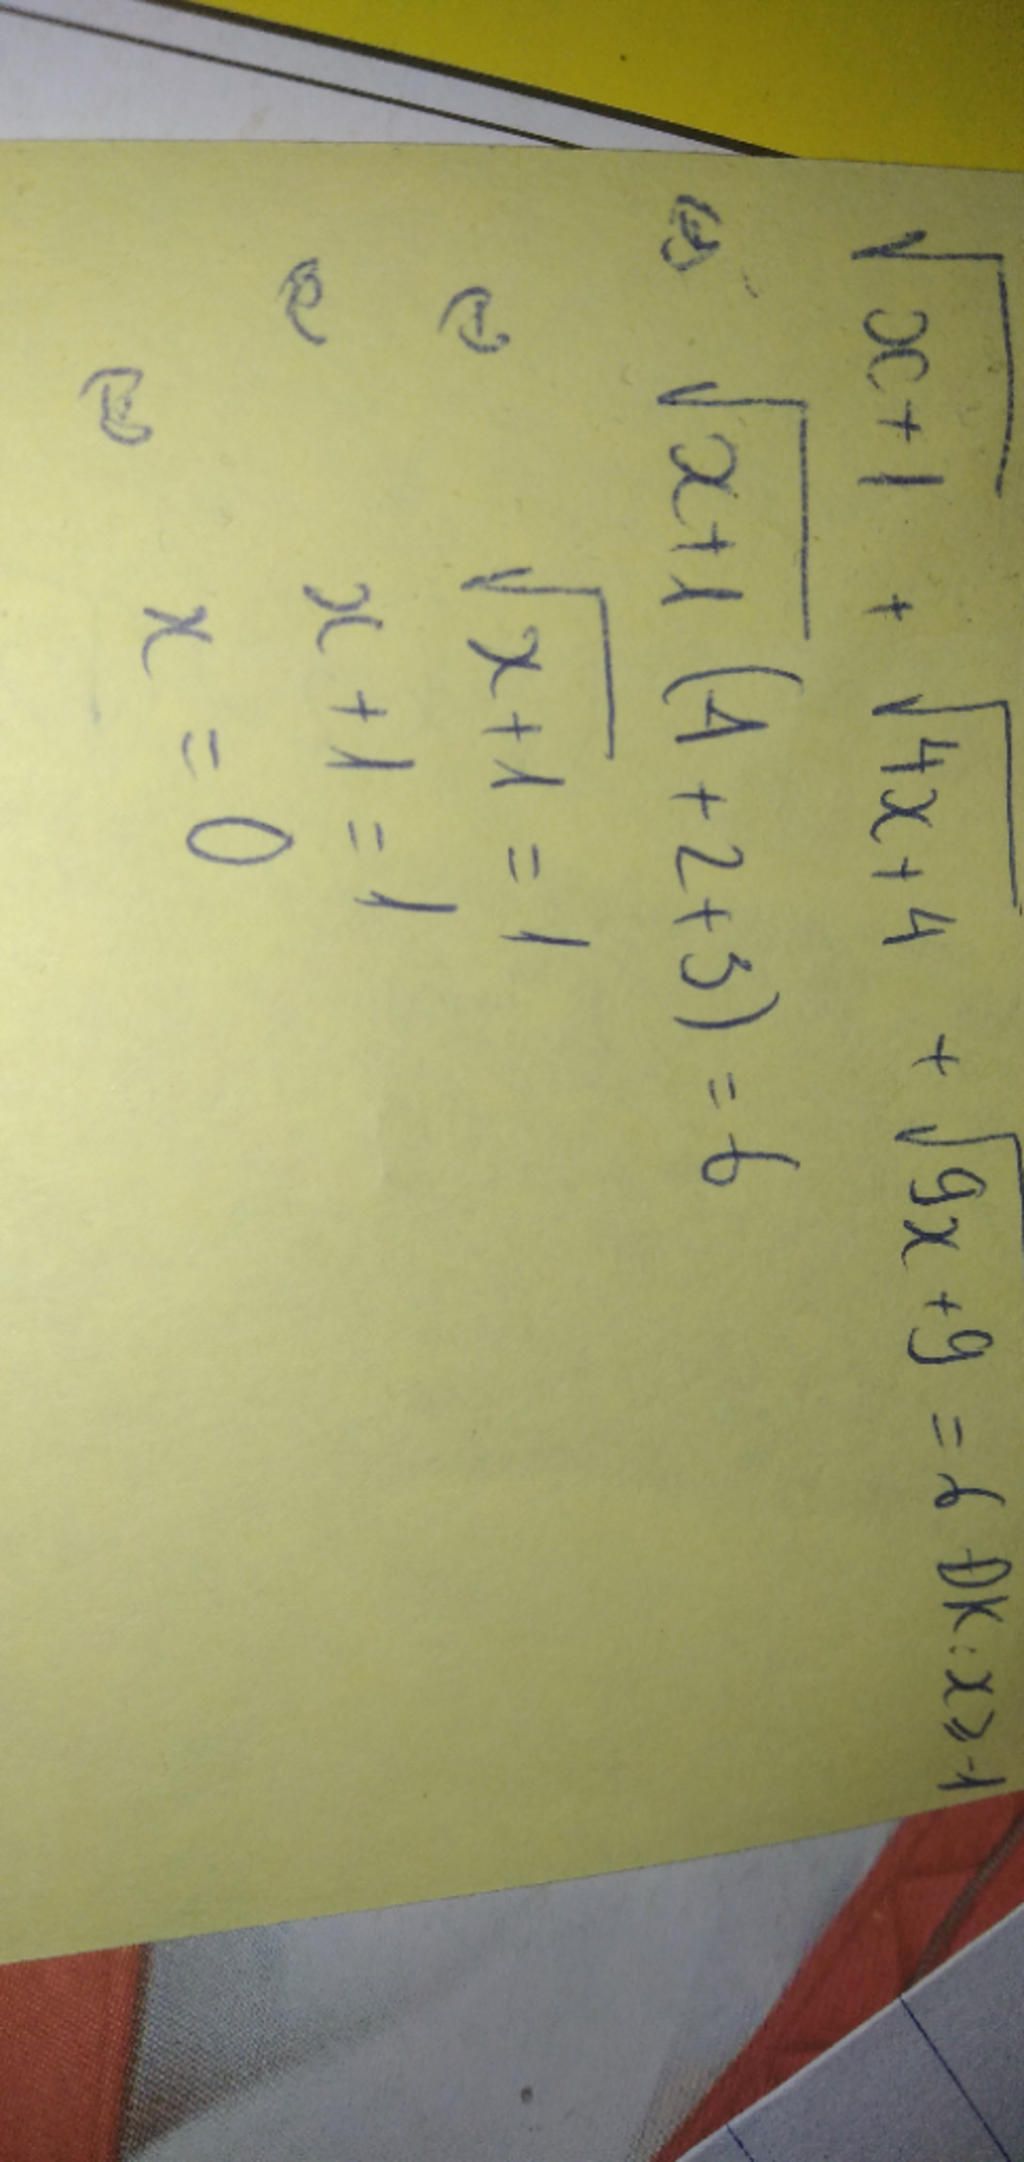 √(x+1) + √(4x+4) + √(9x+9) = 6 ĐK: x ≥ -1
⇔ √(x+1) (1+2+3) = 6
⇔ √(x+1) = 1
⇔ x+1 = 1
⇔ x = 0